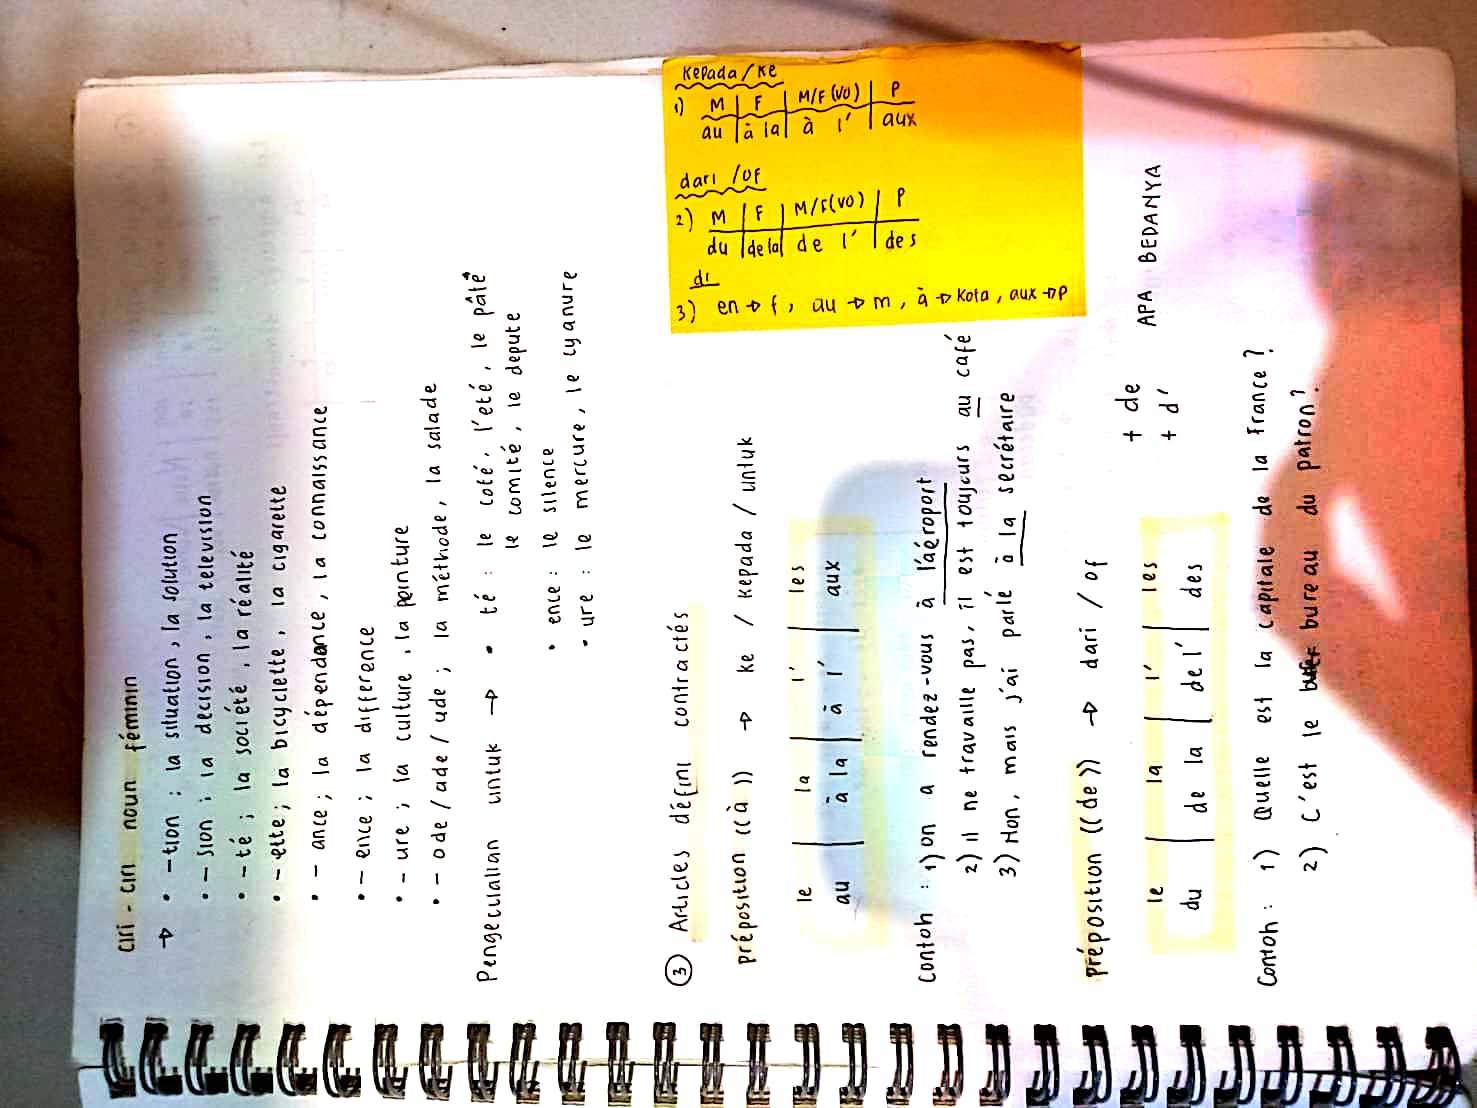 ciri - ciri noun féminin
→ • -tion : la situation, la solution
• - sion : la decision, la television
• - té ; la société, la réalité
• - ette; la bicyclette, la cigarette
• - ance; la dépendance, la connaissance
• - ence; la difference
• - ure; la culture, la peinture
• - ode/ade/ude; la méthode, la salade
Pengecualian untuk → • té : le coté, l'eté, le pâté
le comité, le depute
• ence : le silence
• ure : le mercure, le cyanure
③ Articles défini contractés
préposition ((à)) → ke / kepada / untuk
le | la | l' | les
au | à la | à l' | aux
Contoh : 1) on a rendez-vous à l'aéroport
2) il ne travaille pas, il est toujours au café
3) Non, mais j'ai parlé à la secrétaire
préposition ((de)) → dari / of
+ de
+ d'
APA BEDANYA
le | la | l' | les
du | de la | de l' | des
Contoh : 1) Quelle est la capitale de la France?
2) C'est le bureau du patron?
Kepada/ke
1) M | F | M/F(VO) | P
au | à la | à l' | aux
dari /of
2) M | F | M/F(VO) | P
du | de la | de l' | des
di
3) en → f, au → m, à → kota, aux → P